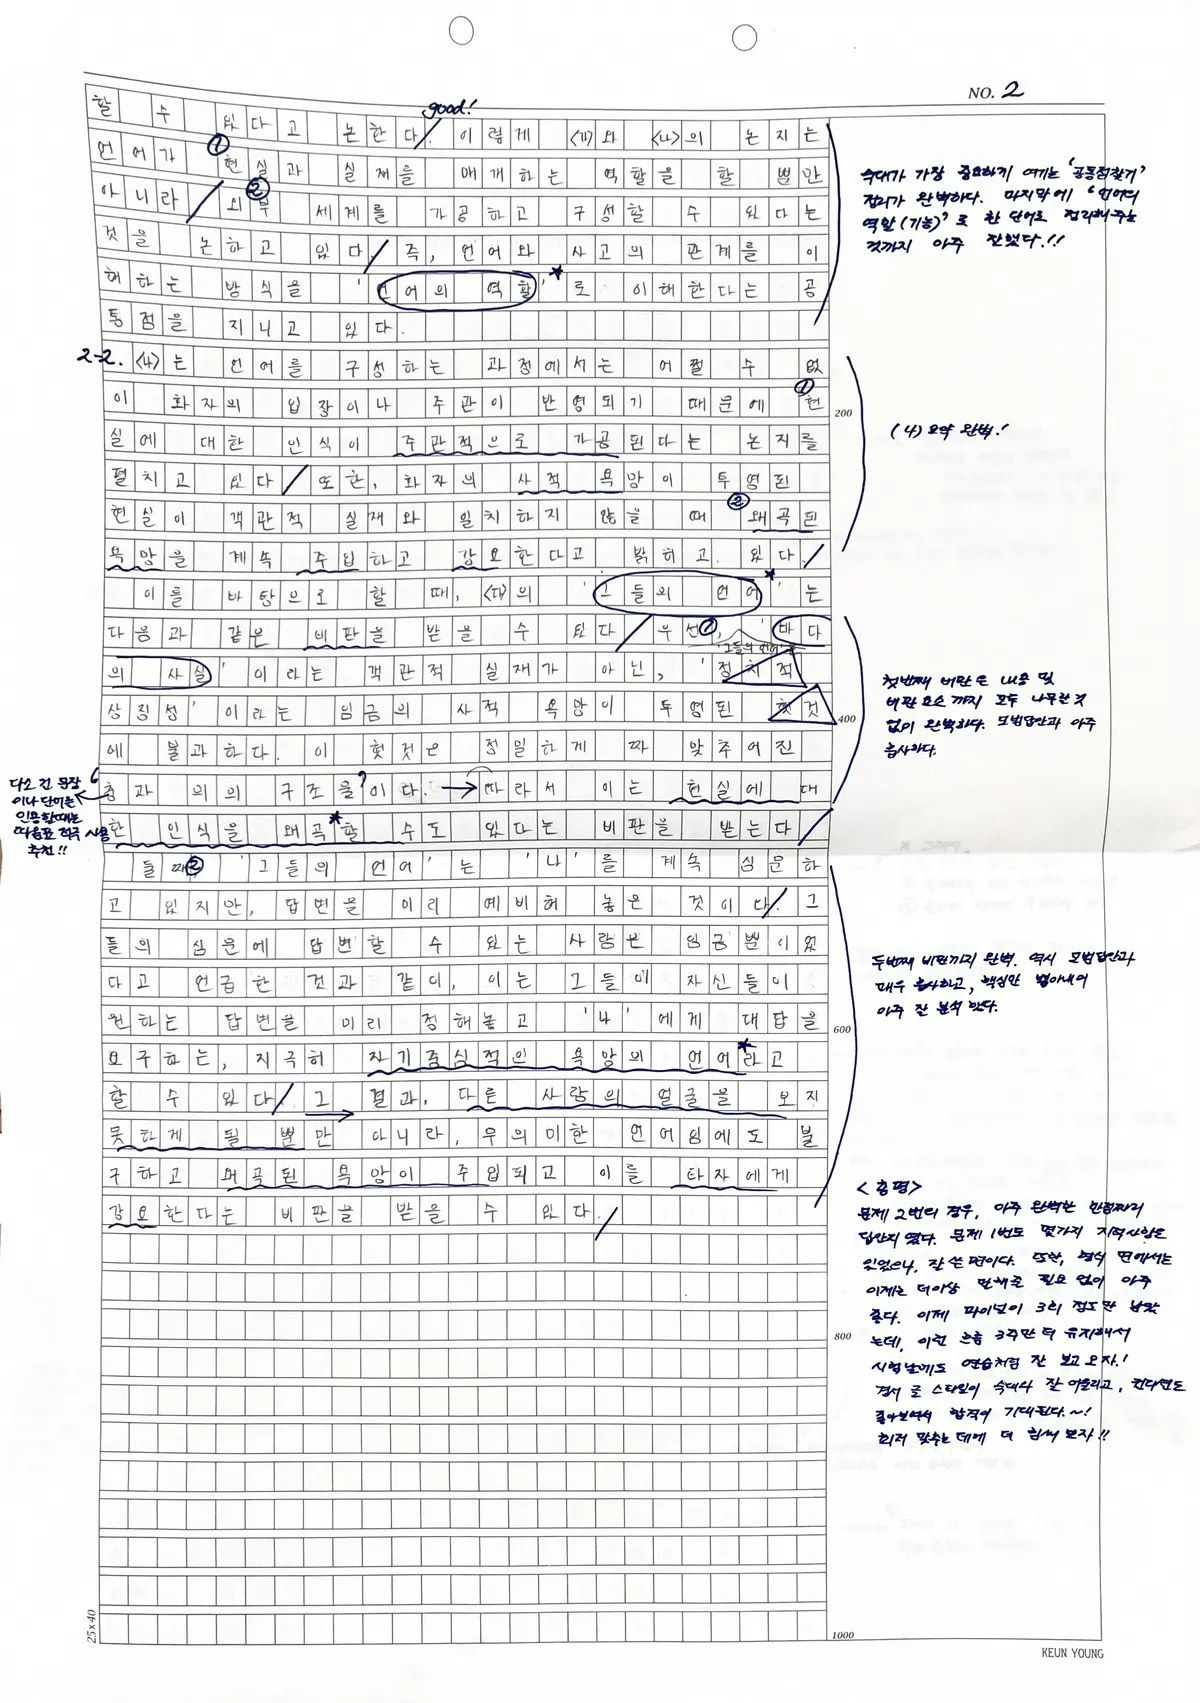 NO. 2
good!
할 수 있다고 논한다. 이렇게 <가>와 <나>의 논지는
언어가 ①현실과 실재를 매개하는 역할을 할 뿐만
아니라 ②외부 세계를 가공하고 구성할 수 있다는
것을 논하고 있다. 즉, 언어와 사고의 관계를 이
해하는 방식을 '언어의 역할'로 이해한다는 공
통점을 지니고 있다.
숙대가 가장 중요하게 여기는 '공통점찾기'
정리가 완벽하다. 마지막에 "언어의
역할(기능)"로 한 단어로 정리해주는
것까지 아주 잘했다.!!
2-2. <4>는 언어를 구성하는 과정에서는 어쩔 수 없
이 화자의 입장이나 주관이 반영되기 때문에 ①현
200
실에 대한 인식이 주관적으로 가공된다는 논지를
(4) 요약 완벽!
펼치고 있다. 또한, 화자의 사적 욕망이 투영된
현실이 객관적 실재와 일치하지 않을 때 ②왜곡된
욕망을 계속 주입하고 강요한다고 밝히고 있다.
이를 바탕으로 할 때, <다>의 '그들의 언어'는
다음과 같은 비판을 받을 수 있다. 우선①, '바다
'그들의 언어'는
의 사실'이라는 객관적 실재가 아닌, '정치적
상징성'이라는 임금의 사적 욕망이 투영된 헛것
400
에 불과하다. 이 헛것은 정밀하게 짜 맞추어진
첫번째 비판은 내용 및
비판 요소까지 모두 나무랄 것
없이 완벽하다. 모범답안과 아주
흡사하다.
충과 의의 구조물이다. 따라서 이는 현실에 대
한 인식을 왜곡할 수도 있다는 비판을 받는다.
다소 긴 문장
이나 단어를
인용할때는
따옴표 적극 사용
추천!!
둘째② '그들의 언어'는 '나'를 계속 심문하
고 있지만, 답변을 미리 예비해 놓은 것이다. 그
들의 심문에 답변할 수 있는 사람은 임금뿐이었
다고 언급한 것과 같이, 이는 그들이 자신들이
원하는 답변을 미리 정해놓고 '나'에게 대답을
600
요구하는, 지극히 자기중심적인 욕망의 언어라고
할 수 있다. 그 결과, 다른 사람의 얼굴을 보지
못하게 될 뿐만 아니라, 무의미한 언어임에도 불
구하고 왜곡된 욕망이 주입되고 이를 타자에게
강요한다는 비판을 받을 수 있다.
두번째 비판까지 완벽. 역시 모범답안과
매우 흡사하고, 핵심만 뽑아내어
아주 잘 분석했다.
<총평>
문제 2번의 경우, 아주 완벽한 만점짜리
답안지였다. 문제 1번도 몇가지 지적사항은
있었으나, 잘 쓴 편이다. 또한, 형식 면에서는
이제는 더이상 말해줄 필요 없이 아주
좋다. 이제 파이널이 3회 정도만 남았
는데, 이런 흐름 3주만 더 유지해서
시험날에도 연습처럼 잘 보고 오자!
글 스타일이 숙대와 잘 어울리고, 컨디션도
좋아보여서 합격이 기대된다.~!
최저 맞추는 데에 더 힘써 보자!!
800
1000
25x40
KEUN YOUNG